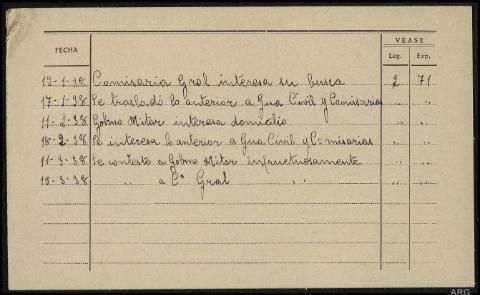 VEASE
FECHA Leg. Exp.
12-1-38 Comisaria Gral interesa su busca 2 71
17-1-38 Se traslodó lo anterior a Gua Civil y Comisarias " "
11-2-38 Gobno Mitar interesa domicilio " "
18-2-38 Se interesa lo anterior a Gua Civil y Comisarias " "
11-3-38 Se contestó a Gobno Mitar infructuosamente " "
15-3-38 " " a Cª Gral " " " "
ARG